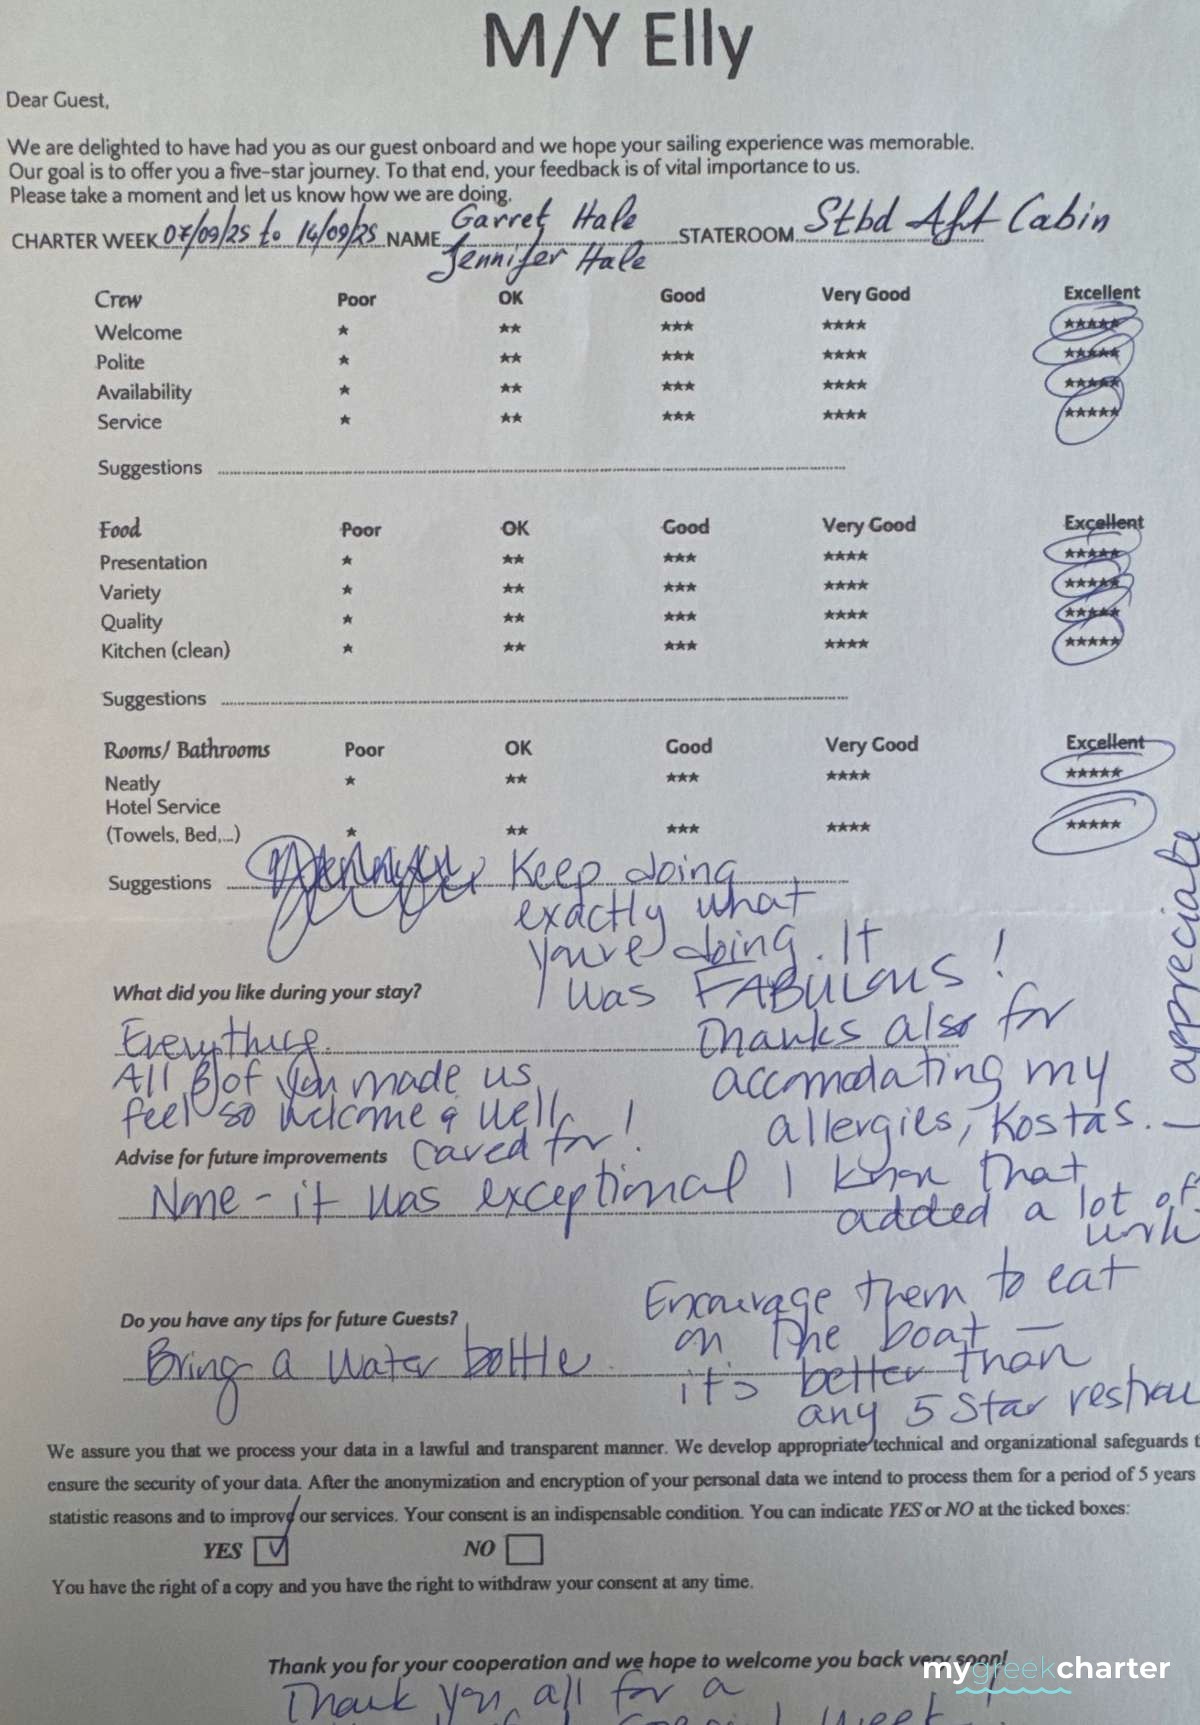 M/Y Elly
Dear Guest,
We are delighted to have had you as our guest onboard and we hope your sailing experience was memorable.
Our goal is to offer you a five-star journey. To that end, your feedback is of vital importance to us.
Please take a moment and let us know how we are doing.
CHARTER WEEK 07/09/25 to 14/09/25 NAME Garret Hale STATEROOM Stbd Aft Cabin
Jennifer Hale
Crew Poor OK Good Very Good Excellent
Welcome ★ ★★ ★★★ ★★★★ ★★★★★
Polite ★ ★★ ★★★ ★★★★ ★★★★★
Availability ★ ★★ ★★★ ★★★★ ★★★★★
Service ★ ★★ ★★★ ★★★★ ★★★★★
Suggestions
Food Poor OK Good Very Good Excellent
Presentation ★ ★★ ★★★ ★★★★ ★★★★★
Variety ★ ★★ ★★★ ★★★★ ★★★★★
Quality ★ ★★ ★★★ ★★★★ ★★★★★
Kitchen (clean) ★ ★★ ★★★ ★★★★ ★★★★★
Suggestions
Rooms/ Bathrooms Poor OK Good Very Good Excellent
Neatly ★ ★★ ★★★ ★★★★ ★★★★★
Hotel Service
(Towels, Bed,...) ★ ★★ ★★★ ★★★★ ★★★★★
Suggestions Keep doing
exactly what
you're doing. It
was FABULOUS!
What did you like during your stay?
Everything.
All 8 of you made us
feel so welcome & well
cared for!
Thanks also for
accomodating my
allergies, Kostas.
I know that
added a lot of
work
appreciate
Advise for future improvements
None - it was exceptional
Do you have any tips for future Guests?
Bring a water bottle.
Encourage them to eat
on the boat —
it's better than
any 5 Star restrau
We assure you that we process your data in a lawful and transparent manner. We develop appropriate technical and organizational safeguards t
ensure the security of your data. After the anonymization and encryption of your personal data we intend to process them for a period of 5 years
statistic reasons and to improve our services. Your consent is an indispensable condition. You can indicate YES or NO at the ticked boxes:
YES NO
You have the right of a copy and you have the right to withdraw your consent at any time.
Thank you for your cooperation and we hope to welcome you back very soon!
mygreekcharter
Thank you all for a
week!